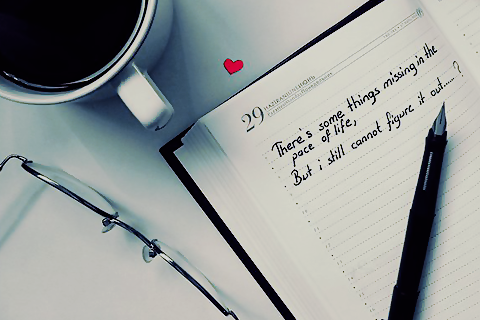 29
There's some things missing in the
pace of life,
But i still cannot figure it out.....?